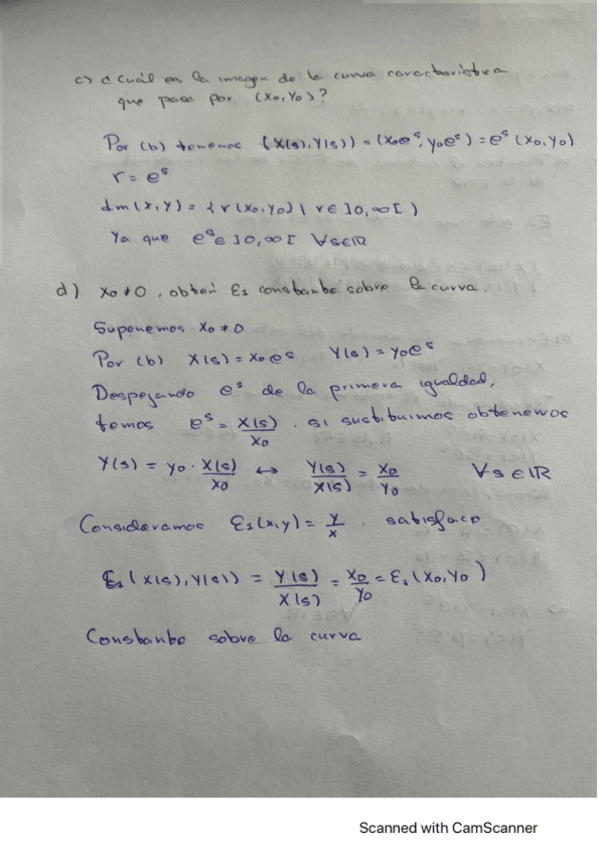 c) ¿Cuál es la imagen de la curva característica
que pasa por (x₀,y₀)?
Por (b) tenemos (X(s),Y(s)) = (x₀eˢ, y₀eˢ) = eˢ (x₀,y₀)
r = eˢ
Im(x,y) = { r(x₀,y₀) \ r∈]0,∞[ )
Ya que eˢ∈]0,∞[ ∀s∈ℝ
d) x₀≠0, obten ε₁ constante sobre la curva.
Suponemos x₀≠0
Por (b) X(s) = x₀eˢ Y(s) = y₀eˢ
Despejando eˢ de la primera igualdad,
temos eˢ = X(s)/x₀ . si sustituimos obtenemos
Y(s) = y₀ · X(s)/x₀ ↔ Y(s)/X(s) = x₀/y₀ ∀s∈ℝ
Consideramos ε₁(x,y) = y/x . satisface
ε₁(X(s),Y(s)) = Y(s)/X(s) = x₀/y₀ = ε₁(x₀,y₀)
Constante sobre la curva
Scanned with CamScanner